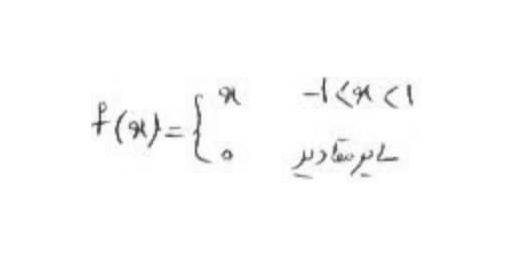 f(x) = { x   -1 < x < 1
0   سایر مقادیر